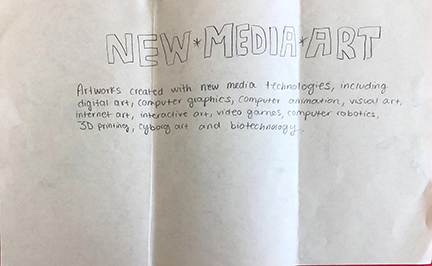 NEW*MEDIA*ART
Artworks created with new media technologies, including
digital art, computer graphics, computer animation, visual art,
internet art, interactive art, video games, computer robotics,
3D printing, cyborg art and biotechnology.